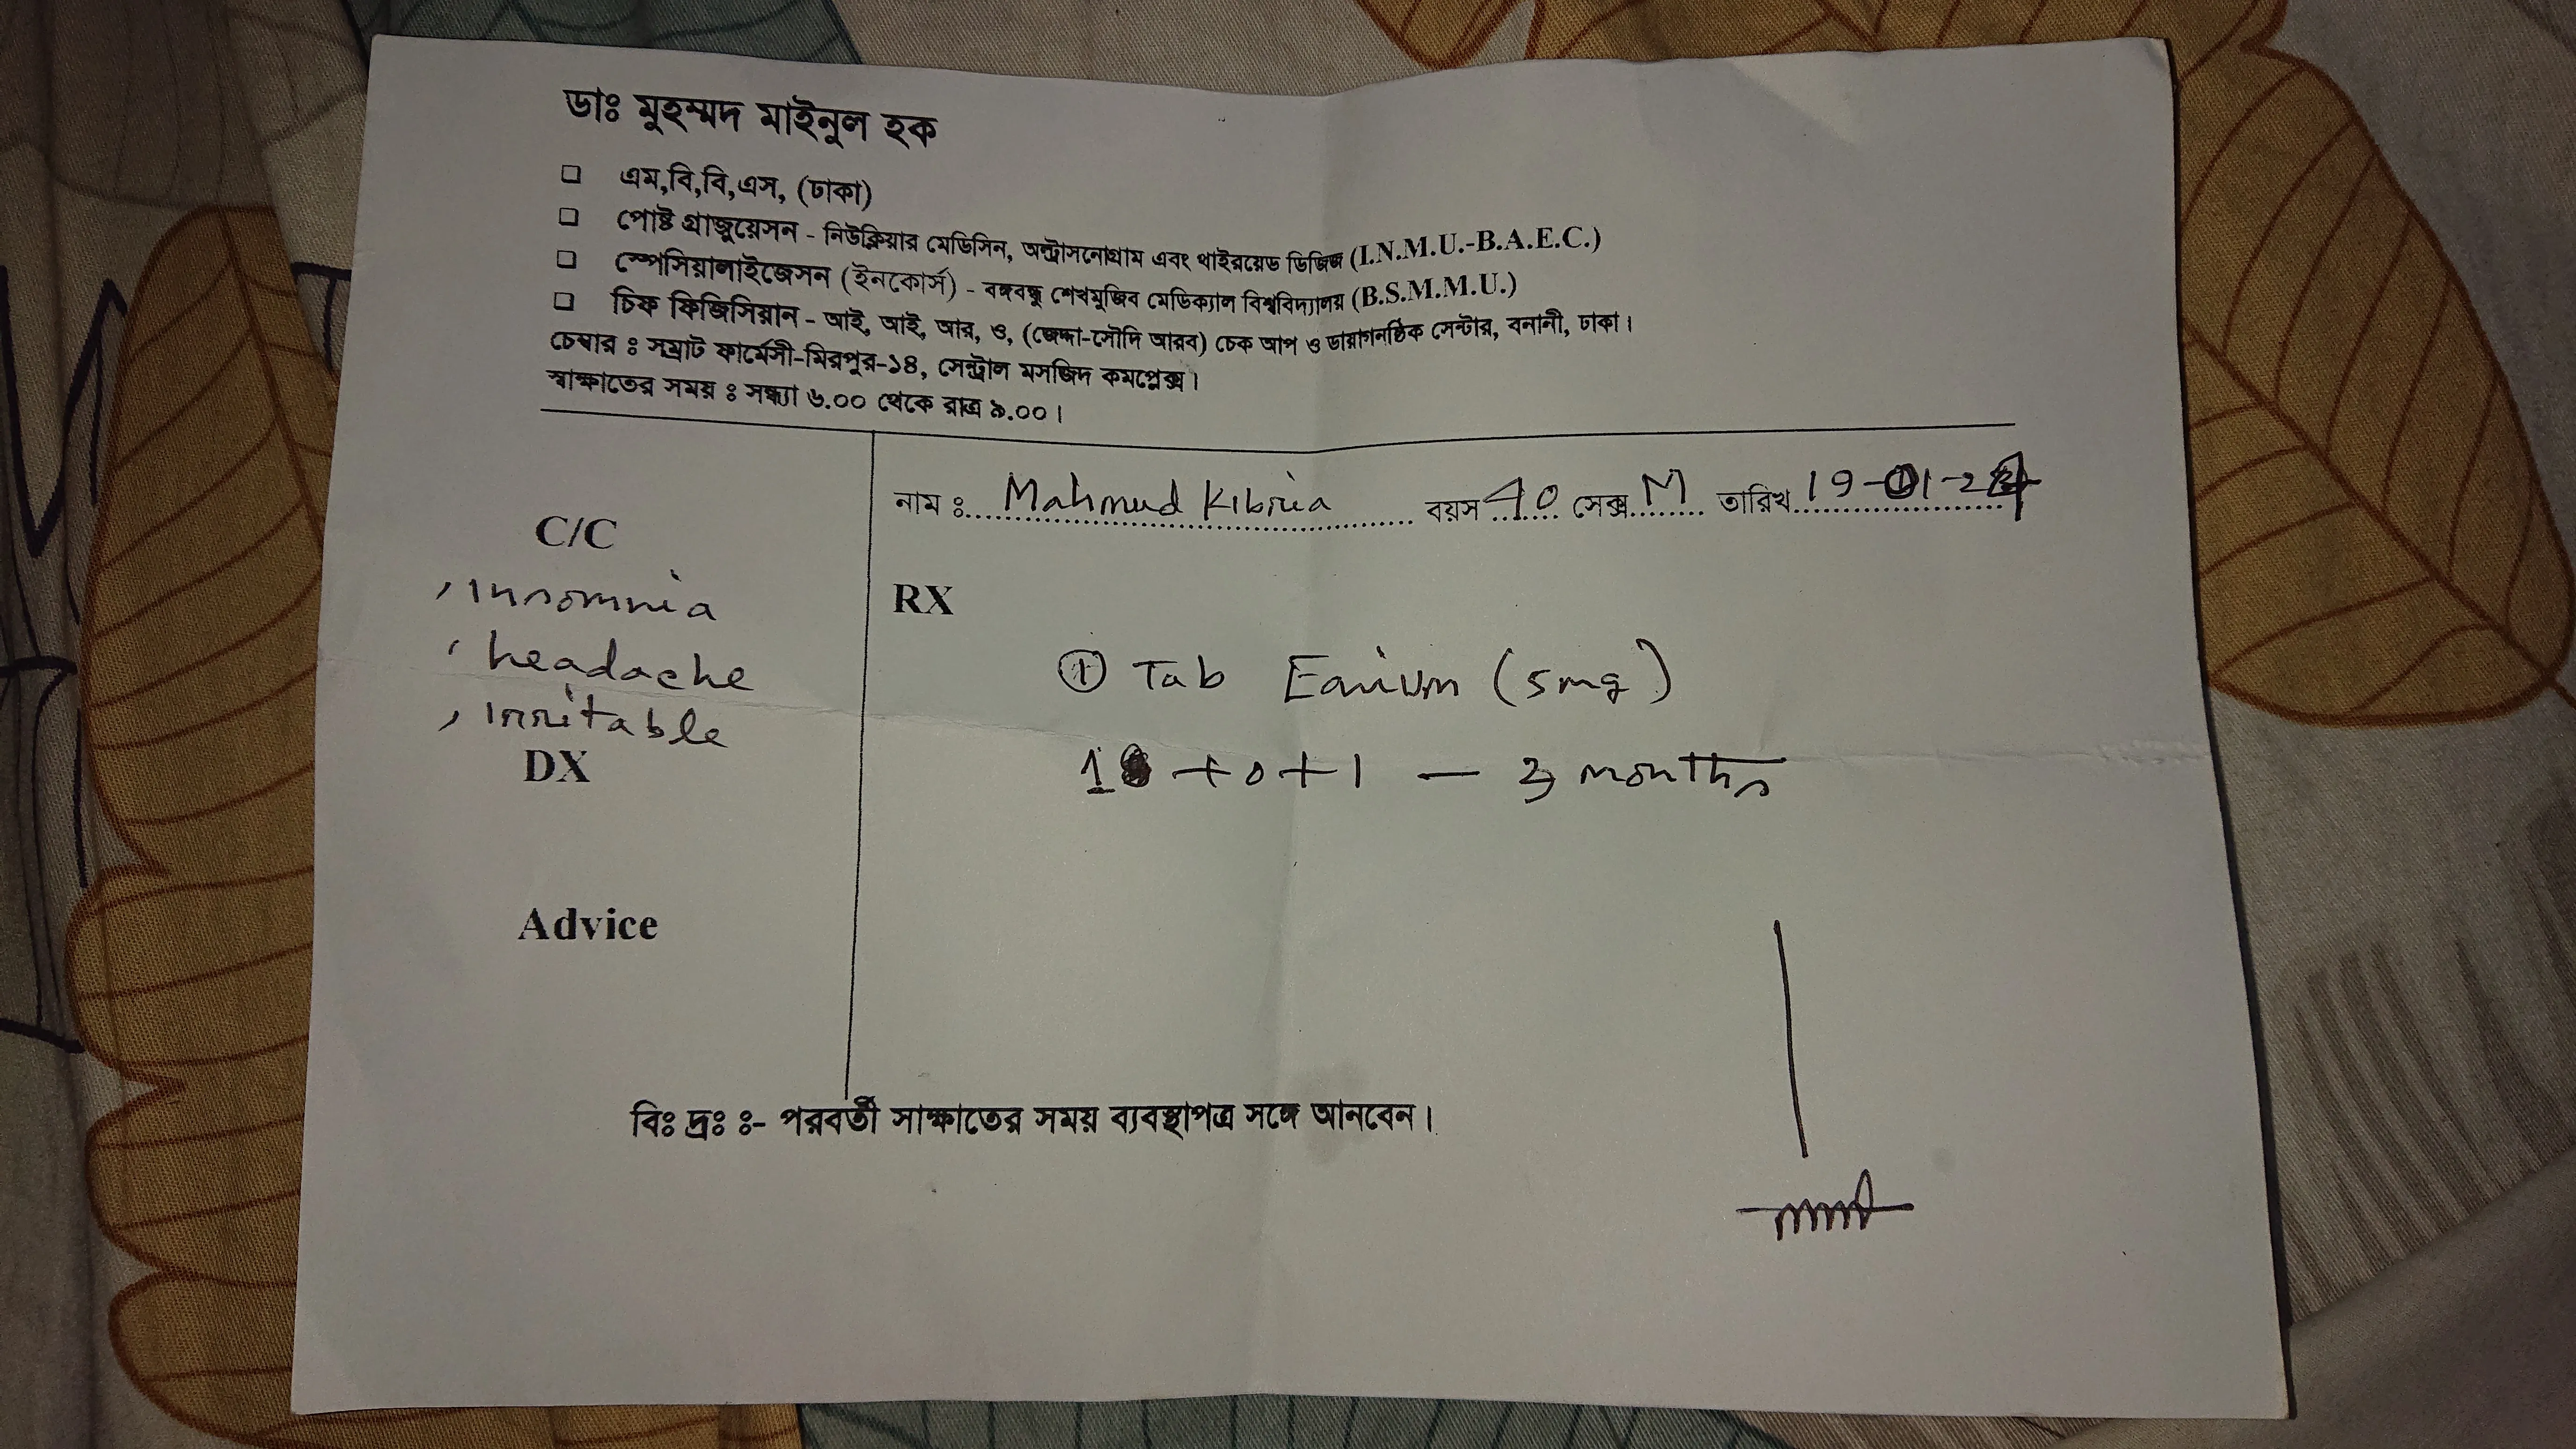 ডাঃ মুহম্মদ মাইনুল হক
এম,বি,বি,এস, (ঢাকা)
পোষ্ট গ্রাজুয়েসন - নিউক্লিয়ার মেডিসিন, অল্ট্রাসনোগ্রাম এবং থাইরয়েড ডিজিজ (I.N.M.U.-B.A.E.C.)
স্পেসিয়ালাইজেসন (ইনকোর্স) - বঙ্গবন্ধু শেখমুজিব মেডিক্যাল বিশ্ববিদ্যালয় (B.S.M.M.U.)
চিফ ফিজিসিয়ান - আই, আই, আর, ও, (জেদ্দা-সৌদি আরব) চেক আপ ও ডায়াগনষ্টিক সেন্টার, বনানী, ঢাকা।
চেম্বার ঃ সম্রাট ফার্মেসী-মিরপুর-১৪, সেন্ট্রাল মসজিদ কমপ্লেক্স।
স্বাক্ষাতের সময় ঃ সন্ধ্যা ৬.০০ থেকে রাত্র ৯.০০।
নাম ঃ Mahmud Kibria বয়স 40 সেক্স M তারিখ 19-01-24
C/C
insomnia
headache
irritable
DX
Advice
RX
① Tab (5mg)
1 + 0 + 1 — 3 months
বিঃ দ্রঃ ঃ- পরবর্তী সাক্ষাতের সময় ব্যবস্থাপত্র সঙ্গে আনবেন।